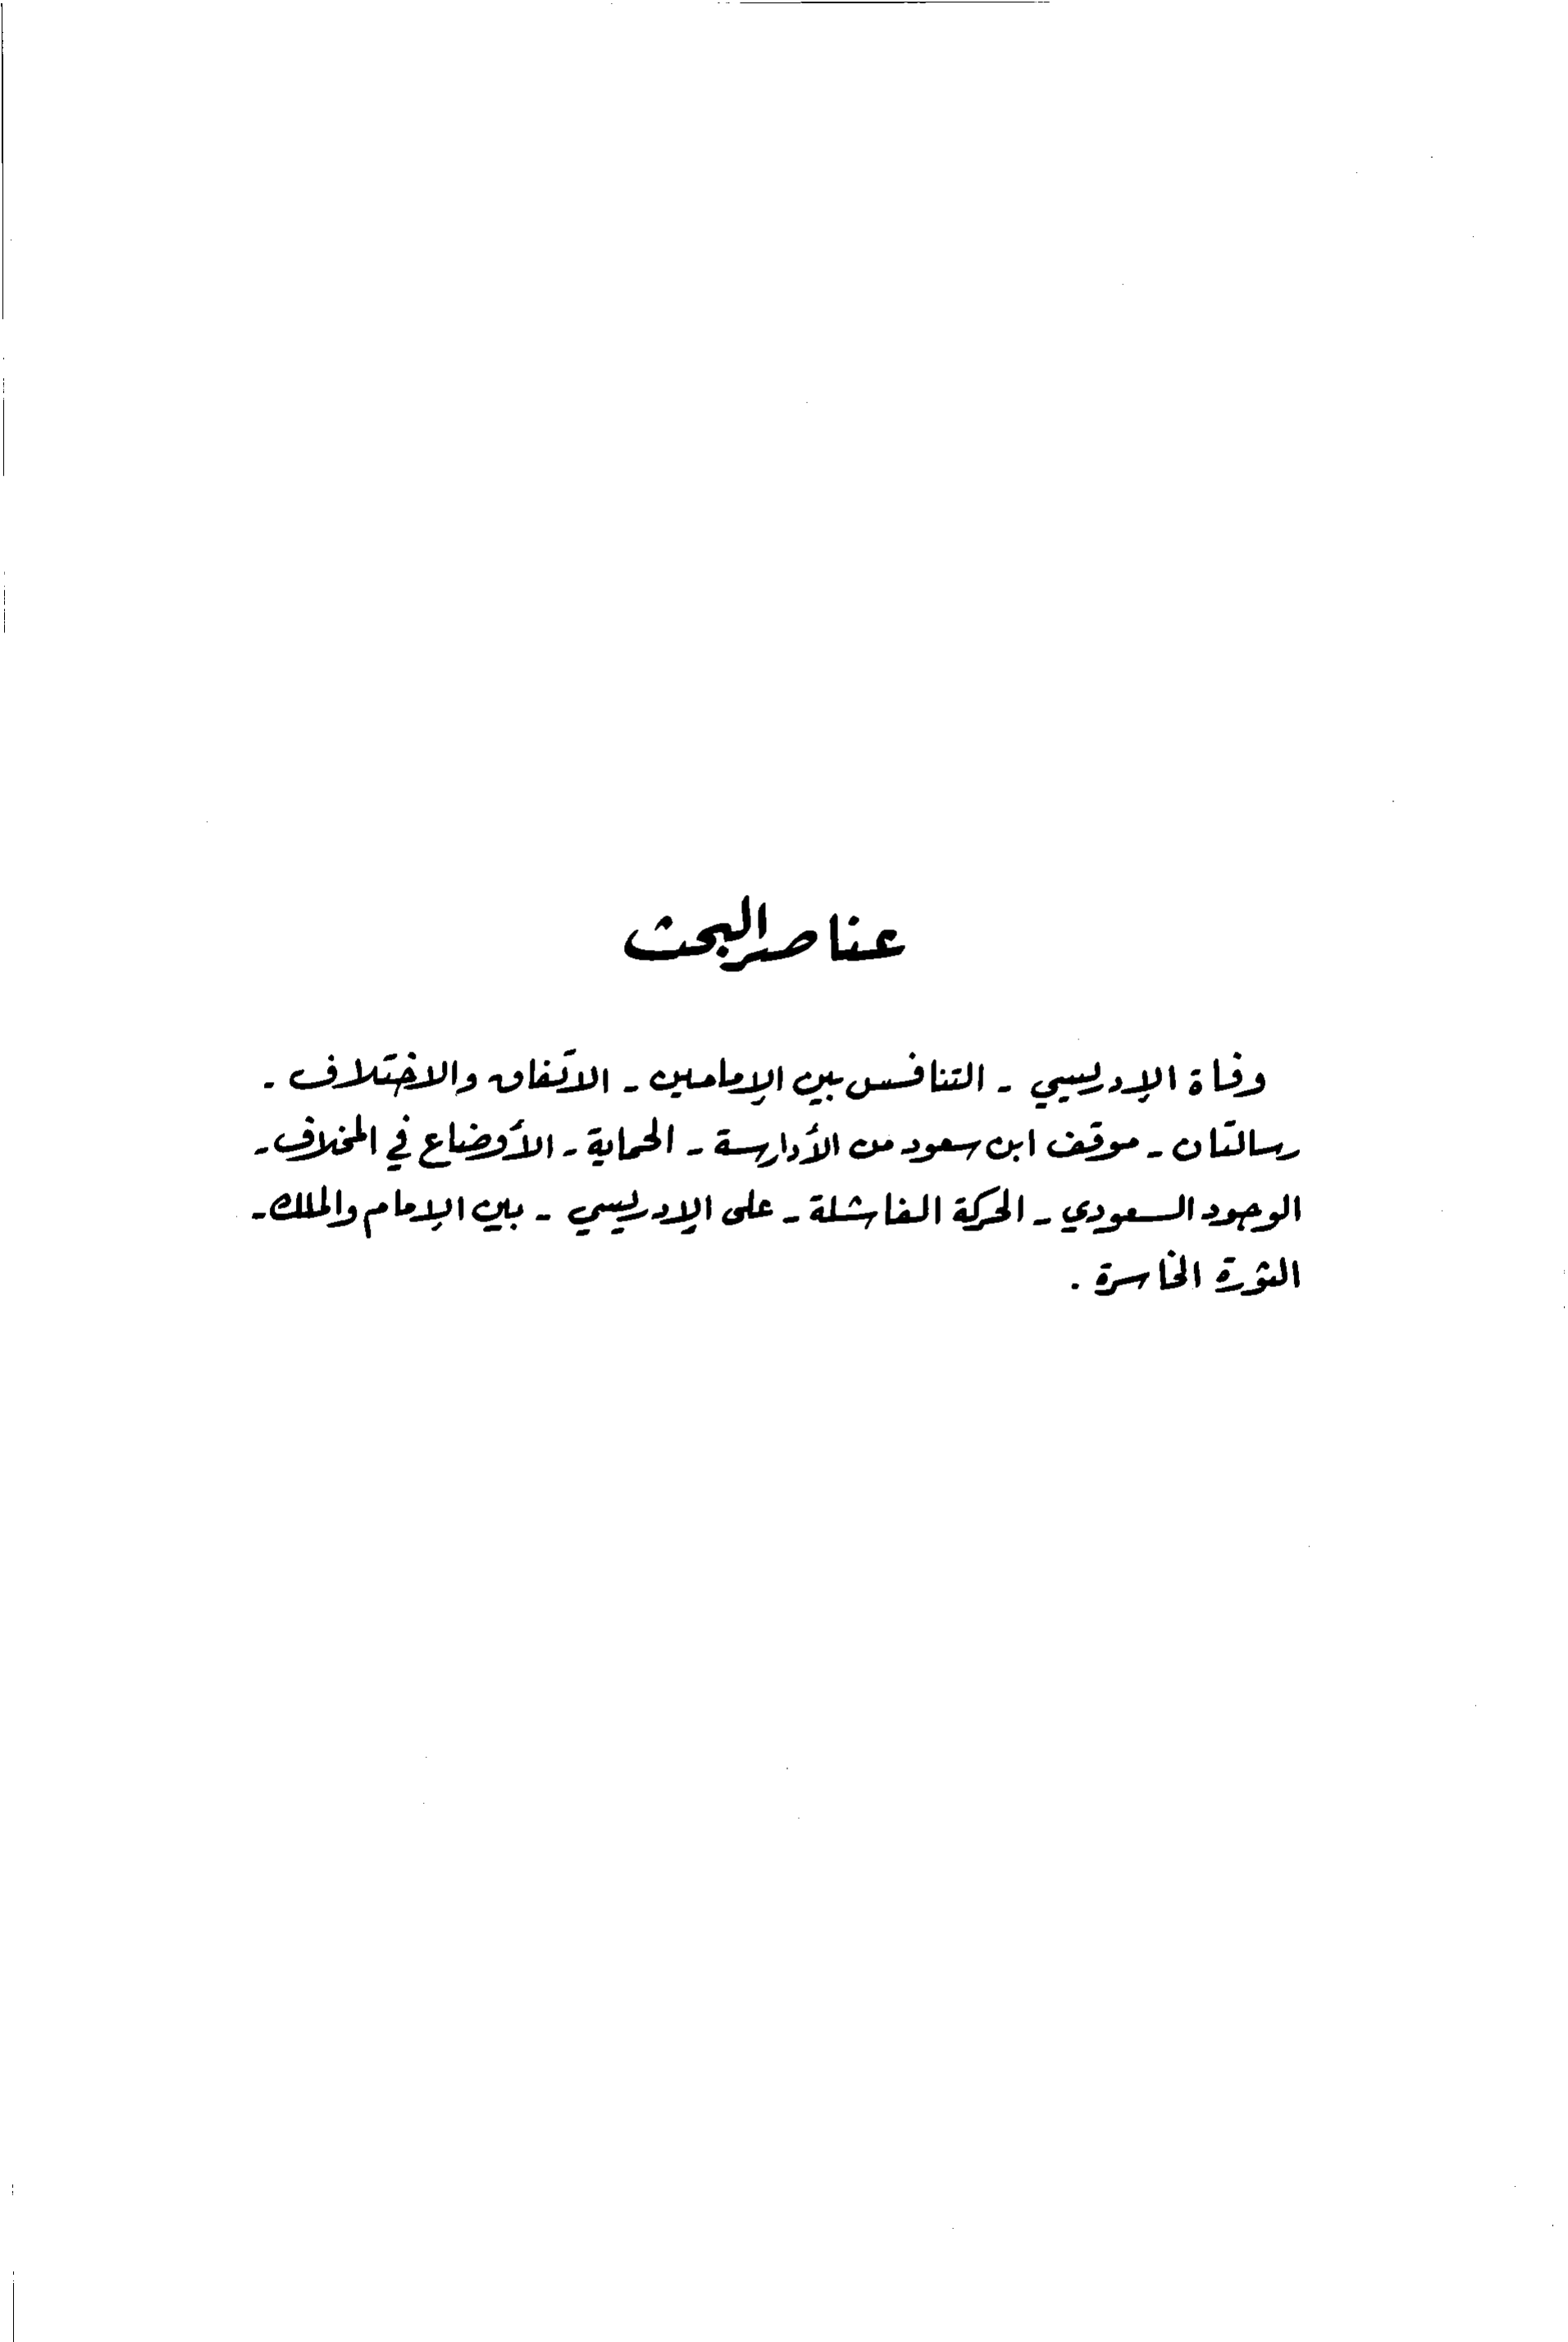 عناصر البحث
وفاة الإدريسي - التنافس بين الإمامين - الاتفاق والاختلاف -
رسالتان - موقف ابن سعود من الأدارسة - الحماية - الأوضاع في المخلاف -
الوجود السعودي - الحركة الفاشلة - على الإدريسي - بين الإمام والملك -
الثورة الخاسرة .